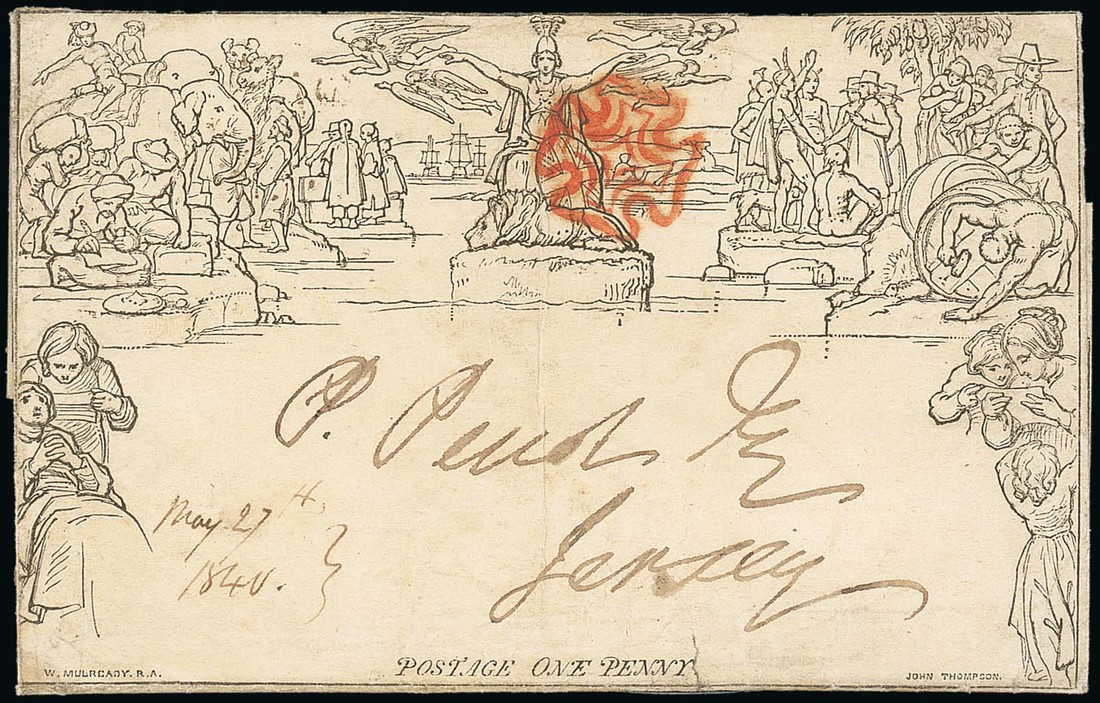 P. Pend
Jersey
May 27th
1840.
POSTAGE ONE PENNY
W. MULREADY. R.A.
JOHN THOMPSON.